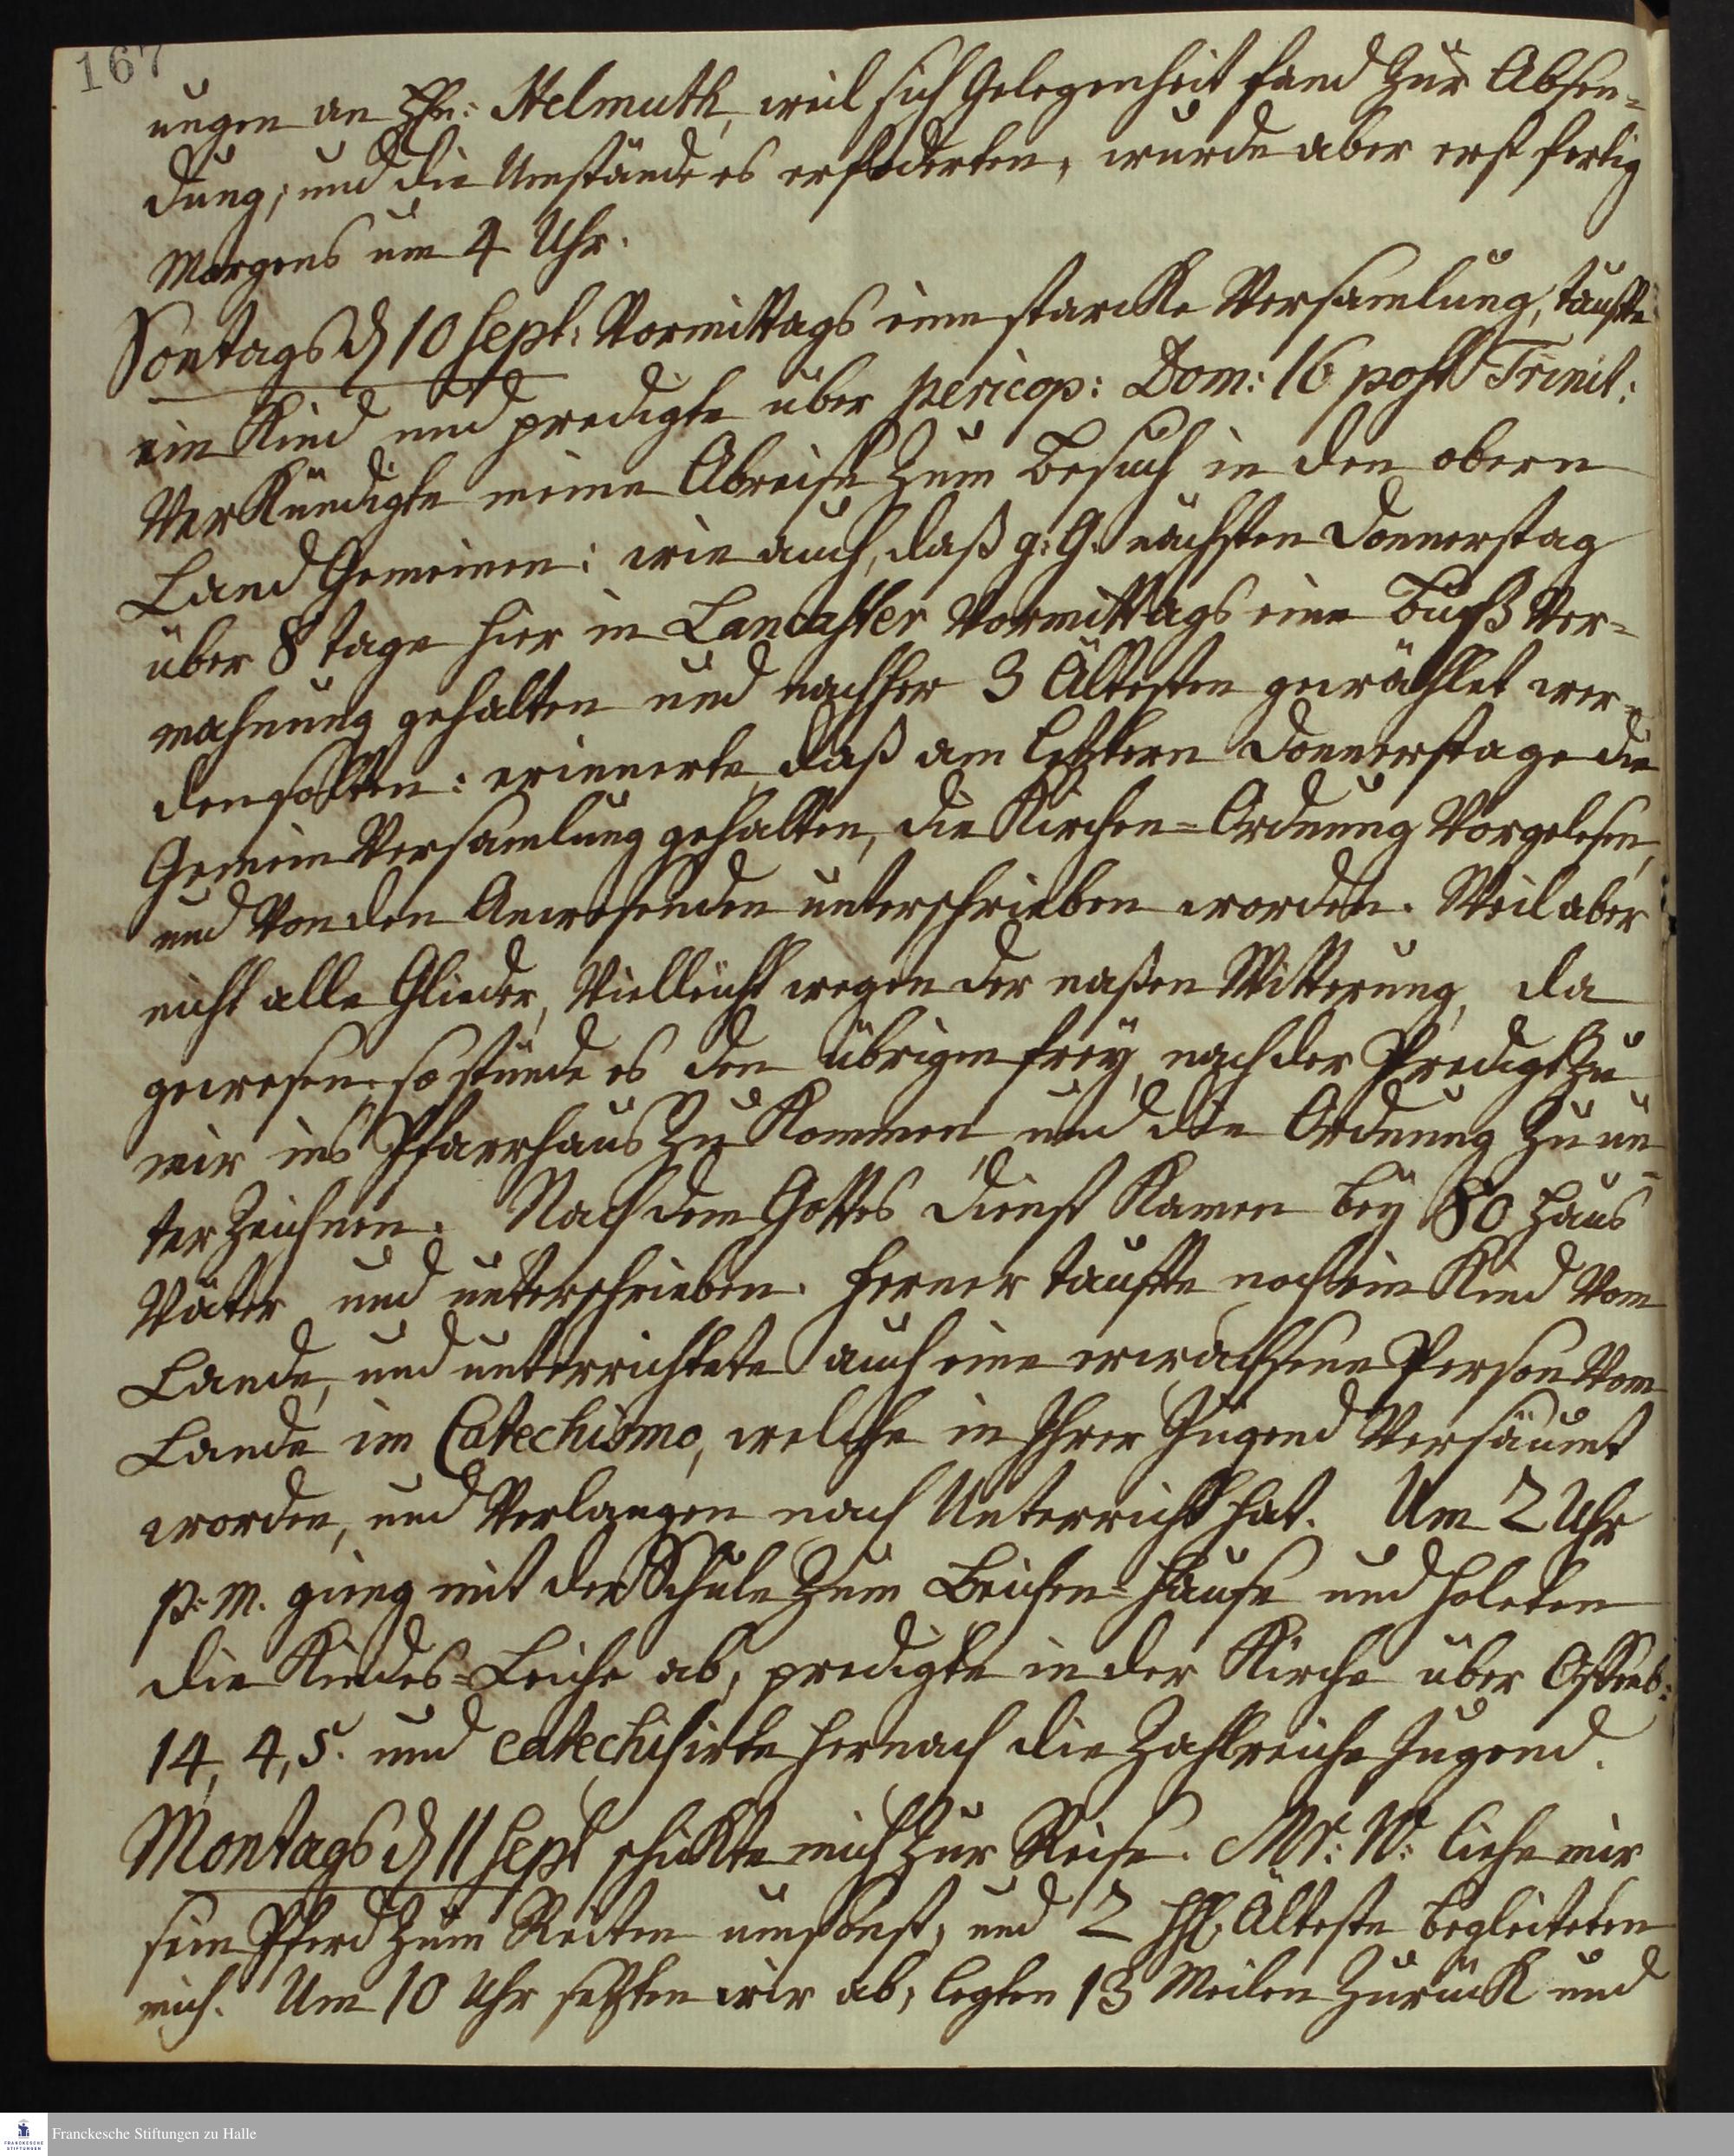 167
ungen an Ehn: Helmuth, weil sich Gelegenheit fand zur Absen=
dung, und die Umstände es erfoderten, wurde aber erst fertig
Morgens um 4 Uhr.
Sontags d 10 Sept: Vormittags eine starcke Versamlung, taufte
ein Kind und predigte über pericop: Dom: 16 post Trinit:
Verkündigte meine Abreise zum Besuch in den obern
Land Gemeinen: wie auch, daß g: G. nächsten Donnerstag
über 8 tage hier in Lancaster Vormittags eine Buß Ver=
mahnung gehalten und nachher 3 Ältesten gewählet wer=
den solten: erinnerte, daß am letztern Donnerstage die
Gemein Versamlung gehalten, die Kirchen=Ordnung Vorgelesen,
und Von den Anwesenden unterschrieben worden. Weil aber
nicht alle Glieder, Vielleicht wegen der naßen Witterung, da
gewesen, so stünde es den übrigen frey, nach der Predigt zu
mir ins Pfarrhaus zu Kommen, und die Ordnung zu un=
ter Zeichnen. Nach dem Gottes Dienst Kamen bey 80 Haus
Väter und unterschrieben. Ferner taufte noch ein Kind Vom
Lande, und unterrichtete auch eine erwachsene Person Vom
Lande im Catechismo, welche in Ihrer Jugend Versäumt
worden, und Verlangen nach Unterricht hat. Um 2 Uhr
p. m. gieng mit der Schule zum Leichen=Hause und holeten
die Kindes=Leiche ab, predigte in der Kirche über Offenb:
14, 4, 5. und catechisirte hernach die Zahlreiche Jugend.
Montags d 11 Sept schickte mich zur Reise. Mr: W: liehe mir
sein Pferd zum Reiten umsonst, und 2 HH. Älteste begleiteten
mich. Um 10 Uhr setzten wir ab, legten 13 Meilen Zurück und
Franckesche Stiftungen zu Halle
FRANCKESCHE
STIFTUNGEN